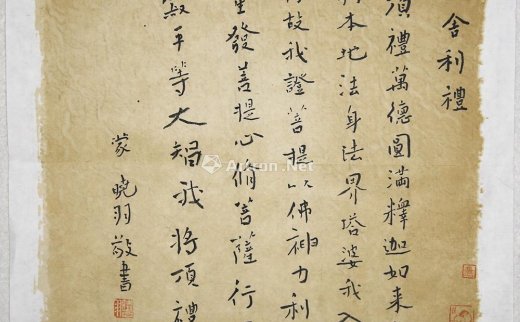 舍利禮
頂禮萬德圓滿釋迦如来
本地法身法界塔婆我入
故我證菩提以佛神力利
發菩提心脩菩薩行
寂平等大智我將頂禮
蒙曉羽敬書
Artron.Net